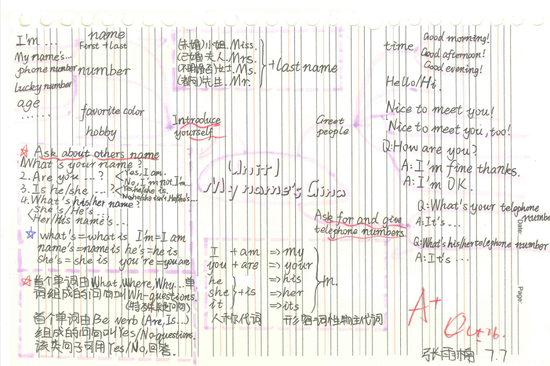 I'm ...
My name's...
phone number
Lucky number
age
......
name
First + Last
number
favorite color
hobby
(未婚)小姐. Miss.
(已婚)夫人. Mrs.
女士. Ms.
先生. Mr.
+last name
Introduce
yourself
time
Good morning!
Good afternoon!
Good evening!
Hello/Hi.
Nice to meet you!
Nice to meet you, too!
Greet
people
Q:How are you?
A:I'm fine thanks.
A:I'm OK.
Ask about others name
1.What's your name?
2.Are you ...?
Yes, I am.
No, I'm not I'm
3.Is he/she ...?
4.What's his/her name?
She's/He's...
Her/His name's...
what's=what is I'm=I am
name's=name is he's=he is
she's=she is you're=you are
Unit1
My name's Gina
Ask for and give
telephone numbers.
Q:What's your telephone
number
A:It's...
Q:What's his/her telephone number
A:It's...
首个单词由What,Where,Why...单
词组成的问句叫Wh-questions.
(特殊疑问句)
首个单词由Be verb (Are,Is...)
组成的问句叫Yes/No questions,
该类问句可用Yes/No,回答.
I + am ⇒ my
you + are ⇒ your
he ⇒ his
she +is ⇒ her
it ⇒ its
n.
人称代词 形容词性物主代词
A+
7.7
Date
Page